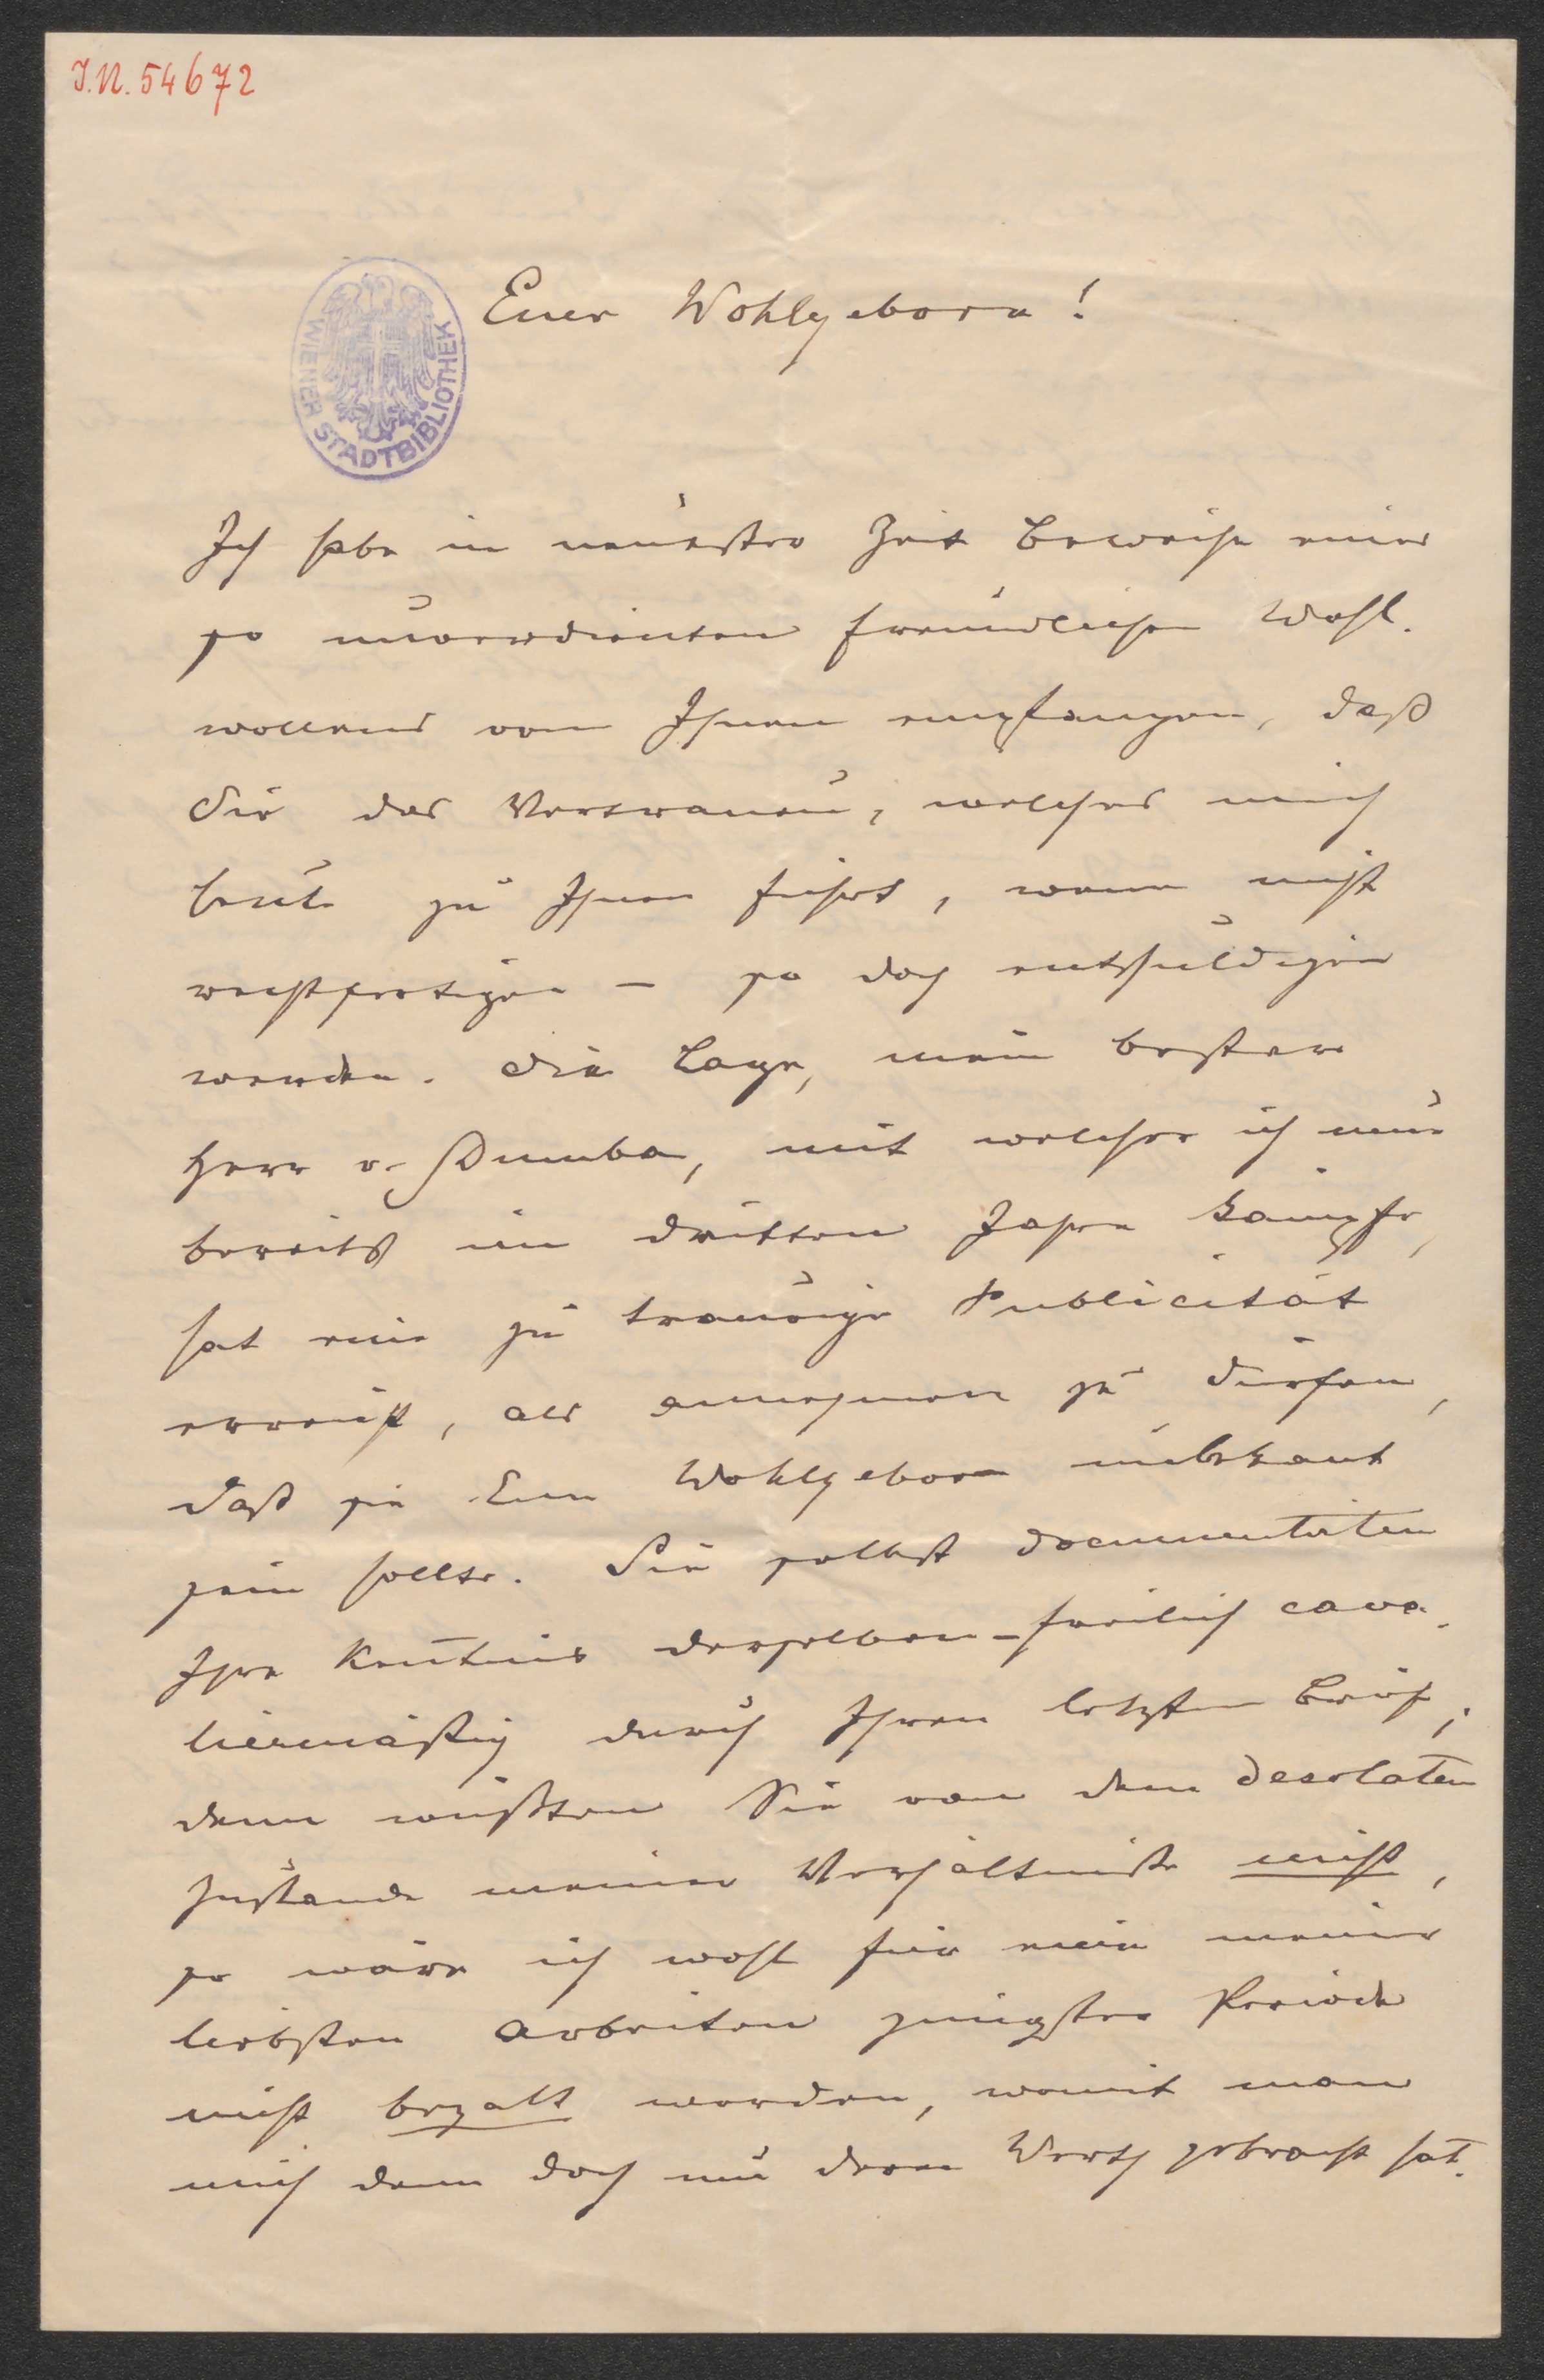 J.N. 54672
WIENER STADTBIBLIOTHEK
Euer Wohlgeborn!
Ich habe in neuester Zeit Beweise eines
so unverdienten freundlichen Wohl-
wollens von Ihnen empfangen, daß
Sie das Vertrauen, welches mich
heute zu Ihnen führt, wenn nicht
rechtfertigen – so doch entschuldigen
werden. Die Lage, mein bester
Herr v. Dumba, mit welcher ich nun
bereits im dritten Jahre kämpfe,
hat eine zu traurige Publicität
erreicht, als annehmen zu dürfen,
daß sie Euer Wohlgeborn unbekannt
sein sollte. Sie selbst documentirten
Ihre Kentnis derselben – freilich cava-
liermäßig durch Ihren letzten Brief,
denn wüßten Sie von dem desolaten
Zustande meiner Verhältniße nicht,
so wäre ich wohl für eine meiner
liebsten Arbeiten jüngster Periode
nicht bezalt worden, womit man
mich denn doch um deren Werth gebracht hat.